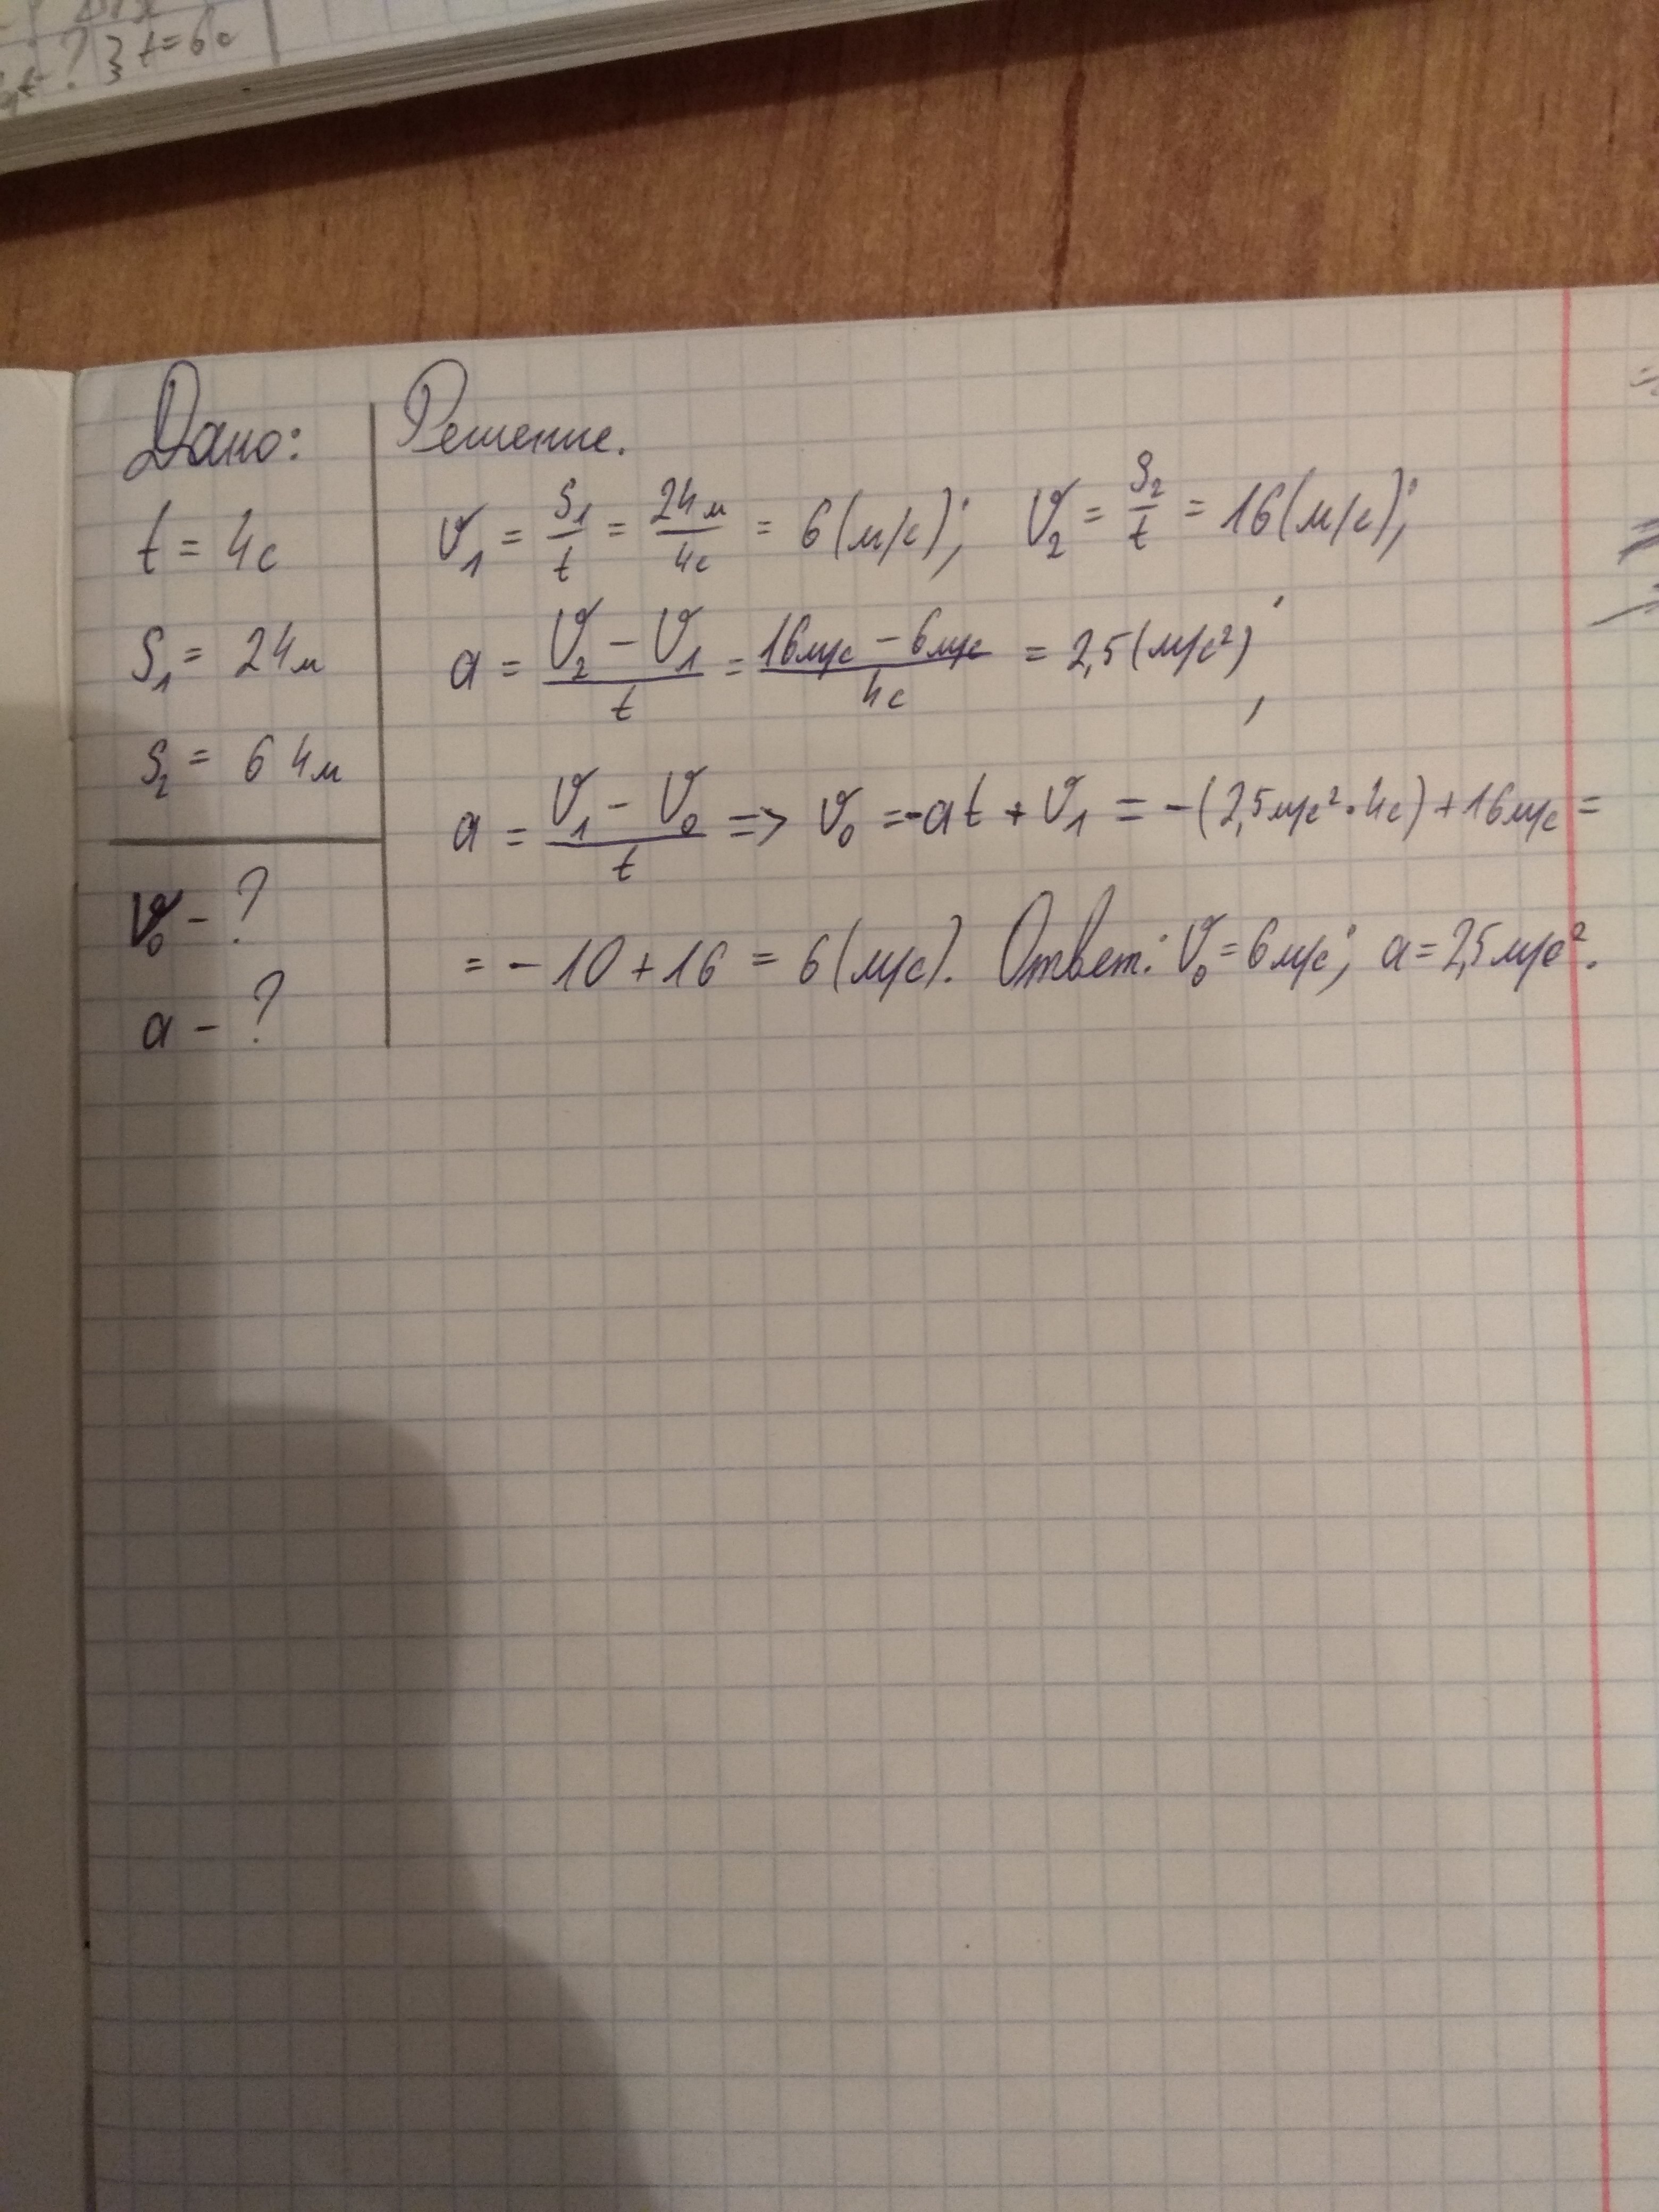 ? } t = 6 с
Дано:
t = 4с
S₁ = 24м
S₂ = 64м
V₀ - ?
a - ?
Решение.
V₁ = S₁/t = 24м/4с = 6(м/с); V₂ = S₂/t = 16(м/с);
a = (V₂ - V₁)/t = (16м/с - 6м/с)/4с = 2,5(м/с²);
a = (V₁ - V₀)/t => V₀ = -at + V₁ = -(2,5м/с² · 4с) + 16м/с =
= -10 + 16 = 6(м/с). Ответ: V₀ = 6м/с; a = 2,5м/с².